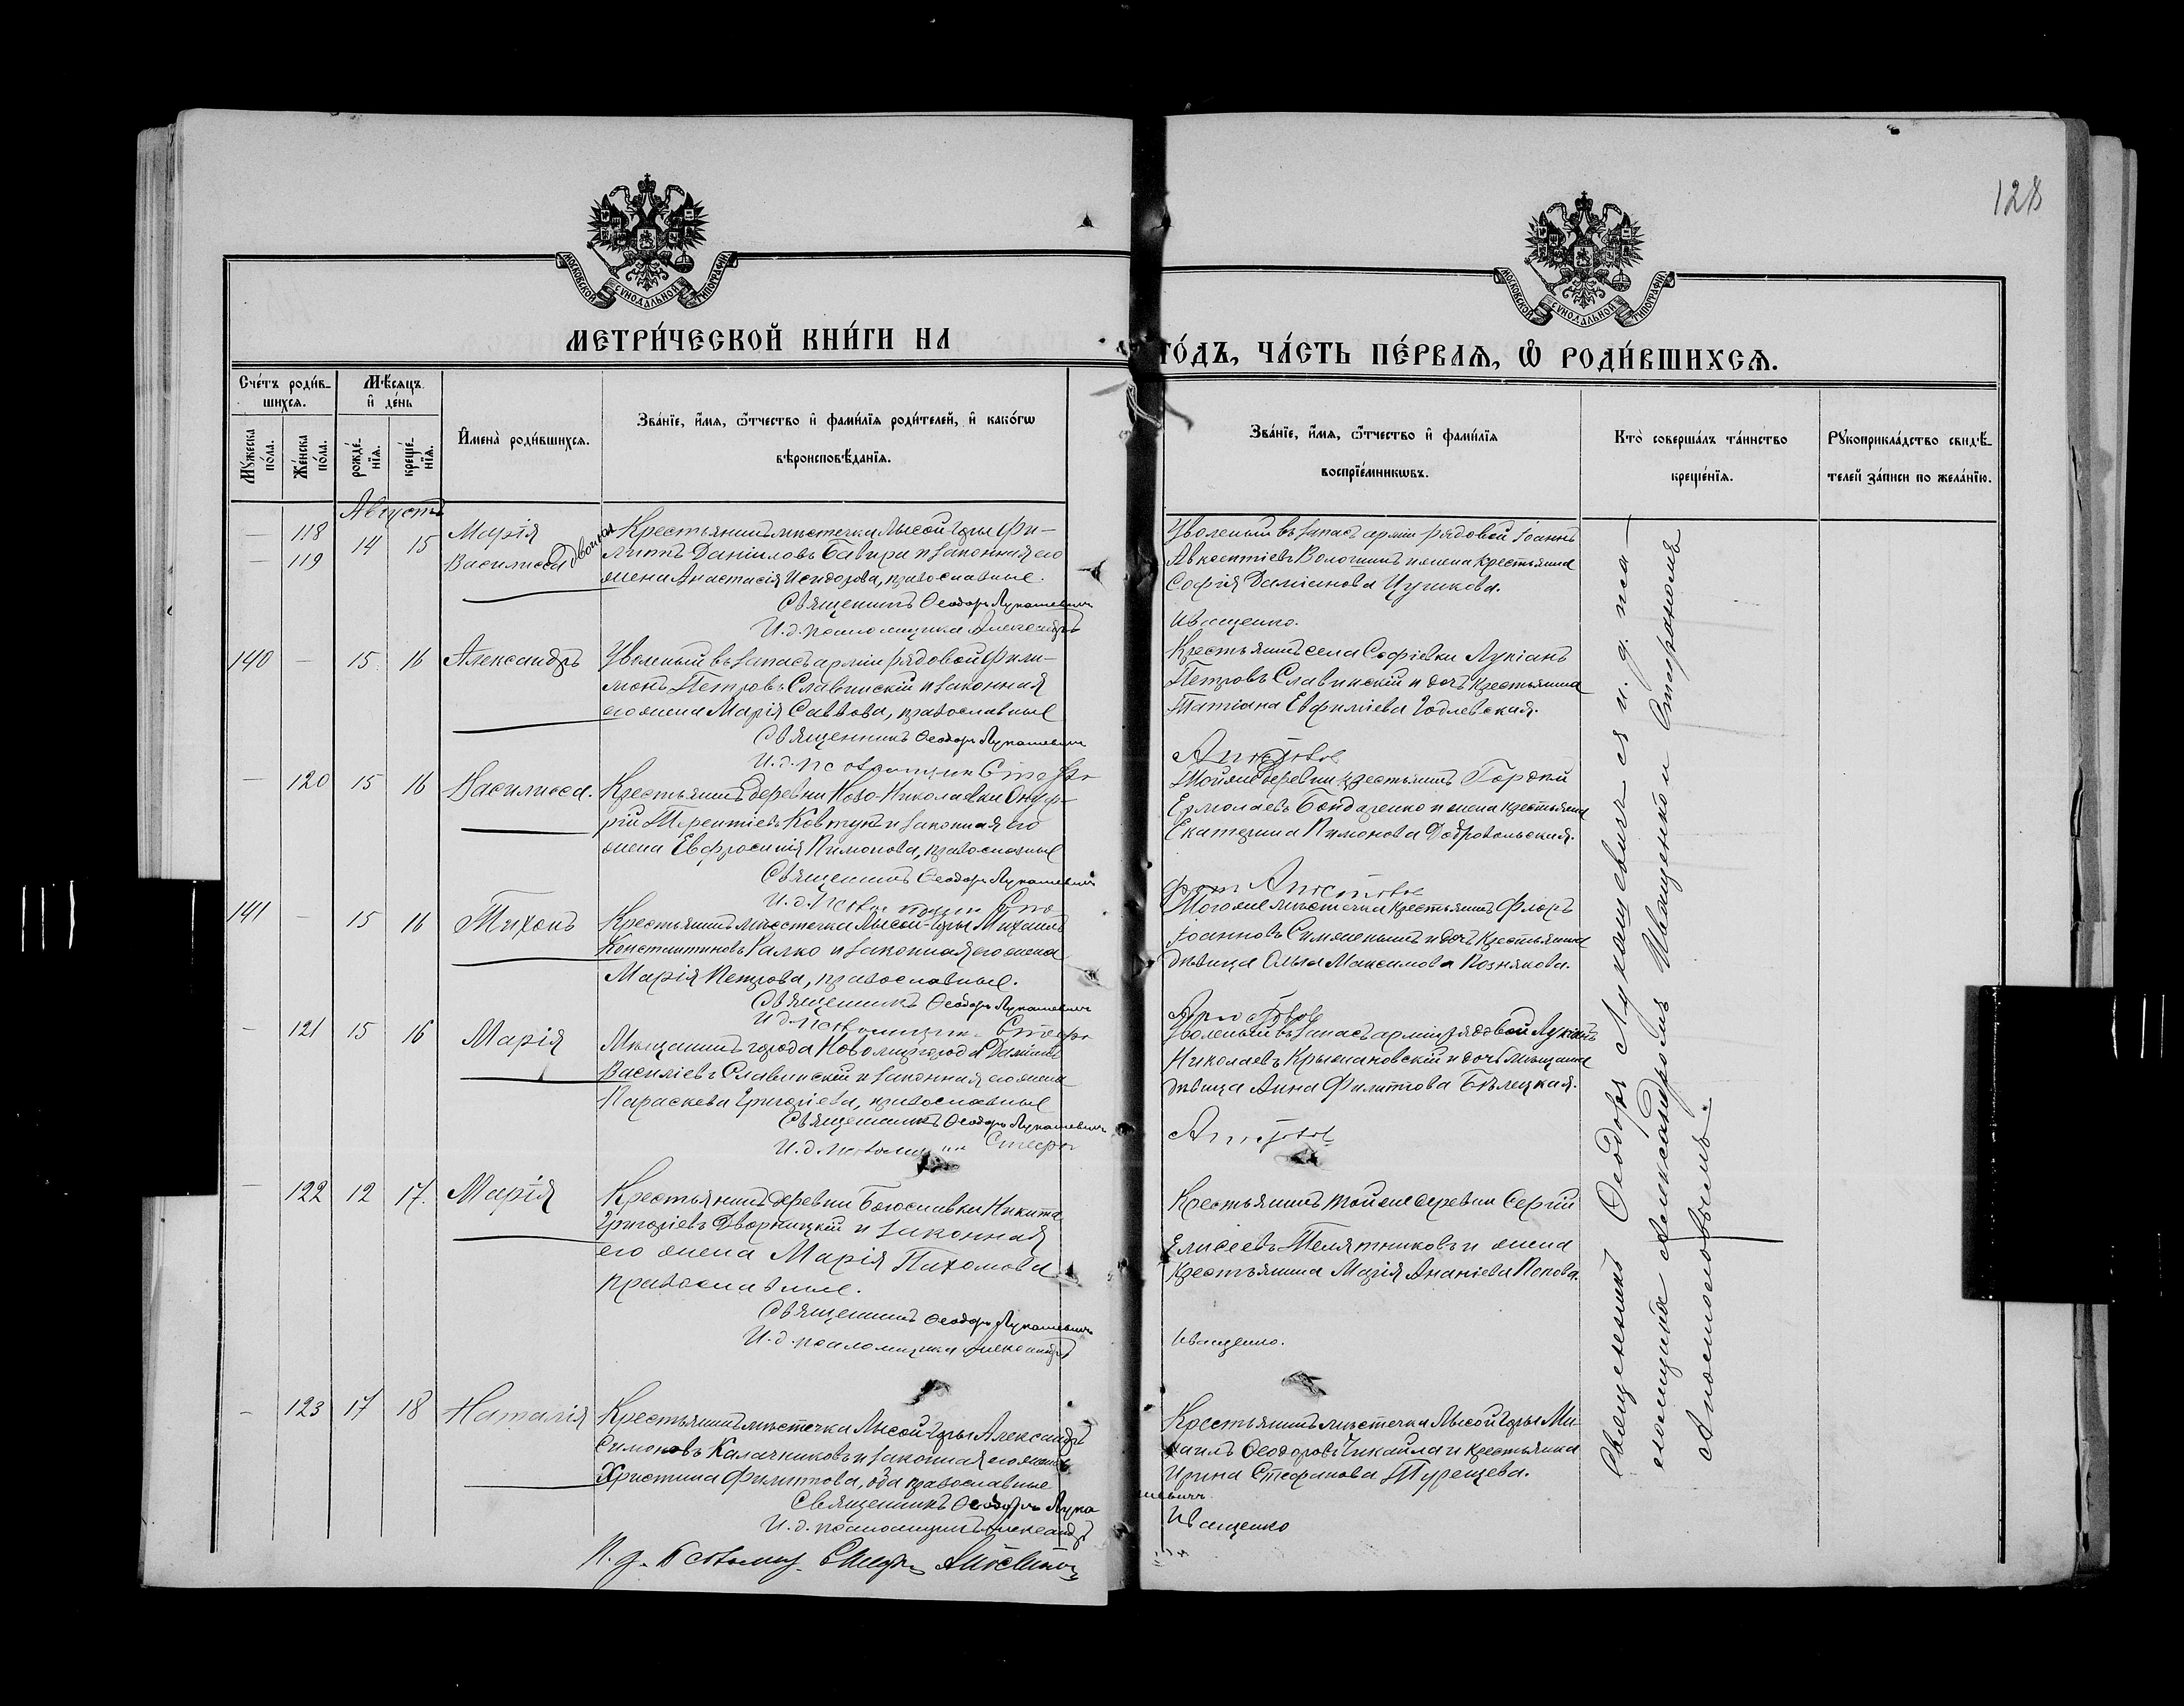 128
МОСКОВСКОЙ СѴНОДАЛЬНОЙ ТИПОГРАФІИ
МОСКОВСКОЙ СѴНОДАЛЬНОЙ ТИПОГРАФІИ
МЕТРИ́ЧЕСКОЙ КНИ́ГИ НА
ГО́ДЪ, ЧА́СТЬ ПЕ́РВАѦ, Ѡ҆ РОДИ́ВШИХСѦ.
Сче́тъ роди́в-
шихсѧ.
Мꙋ́жеска по́ла.
Же́нска по́ла.
Мѣ́сѧцъ и҆ де́нь
рожде́-
нїѧ.
креще́-
нїѧ.
И҆мена̀ роди́вшихсѧ.
Зва́нїе, и҆́мѧ, ѻ҆́тчество и҆ фами́лїѧ роди́телей, и҆ како́гѡ
вѣроисповѣ́данїѧ.
Зва́нїе, и҆́мѧ, ѻ҆́тчество и҆ фами́лїѧ
воспрїе́мникѡвъ.
Кто̀ соверша́лъ та́инство
креще́нїѧ.
Рꙋкоприкла́дство свидѣ́-
телей за́писи по жела́нїю.
Августъ
— 118 14 15 Марія
— 119 Василисса двойни
Крестьянинъ мѣстечка Лысой-Горы Фи-
липпъ Даніиловъ Бавира и законная его
жена Анастасія Исидорова, православные.
Священникъ Ѳеодоръ Лукашевичъ
И. д. псаломщика Александръ
Уволеный въ запасъ арміи рядовой Іоаннъ
Авксентіевъ Волошинъ и жена крестьянина
Софія Даміанова Цушкова.
Иващенко.
140 — 15 16 Александръ
Уволеный въ запасъ арміи рядовой Фили-
монъ Петровъ Славинскій и законная
его жена Марія Саввова, православные
Священникъ Ѳеодоръ Лукашевичъ
И. д. псаломщика Стефа
Крестьянинъ села Софіевки Лукіанъ
Петровъ Славинскій и дочь крестьянина
Татіана Евфиміева Годлевская.
Апостолов
— 120 15 16 Василисса.
Крестьянинъ деревни Ново-Николаевки Онуф-
рій Терентіевъ Ковтунъ и законная его
жена Евфросинія Пимонова, православные
Священникъ Ѳеодоръ Лукашевичъ
И. д. псаломщика Сте
Той же деревни крестьянинъ Гордій
Ермолаевъ Бондаренко и жена крестьянина
Екатерина Пимонова Добровольская.
фан Апостолов
141 — 15 16 Тихонъ
Крестьянинъ мѣстечка Лысой-Горы Михаилъ
Константиновъ Галко и законная его жена
Марія Петрова, православные.
Священникъ Ѳеодоръ Лукашевичъ
И. д. псаломщика Стефа
Того же мѣстечка крестьянинъ Флоръ
Іоанновъ и дочь крестьянина
дѣвица Ольга Максимова Познякова.
Апостолов
— 121 15 16 Марія
Мѣщанинъ города Новомиргорода Даніилъ
Василіевъ Славинскій и законная его жена
Параскева Григоріева, православные
Священникъ Ѳеодоръ Лукашевичъ
И. д. псаломщика Стефа
Уволеный въ запасъ арміи рядовой Лукіанъ
Николаевъ Крыжановскій и дочь мѣщанина
дѣвица Анна Филиппова Бѣлецкая.
Апостолов
— 122 12 17. Марія
Крестьянинъ деревни Богославки Никита
Григоріевъ Дворницкій и законная
его жена Марія Пахомова
православные.
Священникъ Ѳеодоръ Лукашевичъ
И. д. псаломщика Александръ
Крестьянинъ той же деревни Сергій
Елисеевъ Телятниковъ и жена
крестьянина Марія Ананіева Попова.
Иващенко.
— 123 17 18 Наталія
Крестьянинъ мѣстечка Лысой-Горы Александръ
Симоновъ Калачниковъ и законная его жена
Христина Филиппова, оба православные
Священникъ Ѳеодоръ Лука
И. д. псаломщика Александръ
И. д. Псаломщ. Стефан Апостолов
Крестьянинъ мѣстечка Лысой Горы Ми-
хаилъ Ѳеодоровъ Чикайла и крестьянка
Ирина Стефанова Турещева.
шевичъ
Иващенко
Священникъ Ѳеодоръ Лукашевичъ съ и. д. пса-
ломщика Александромъ Иващенко и Стефаномъ
Апостоловымъ.